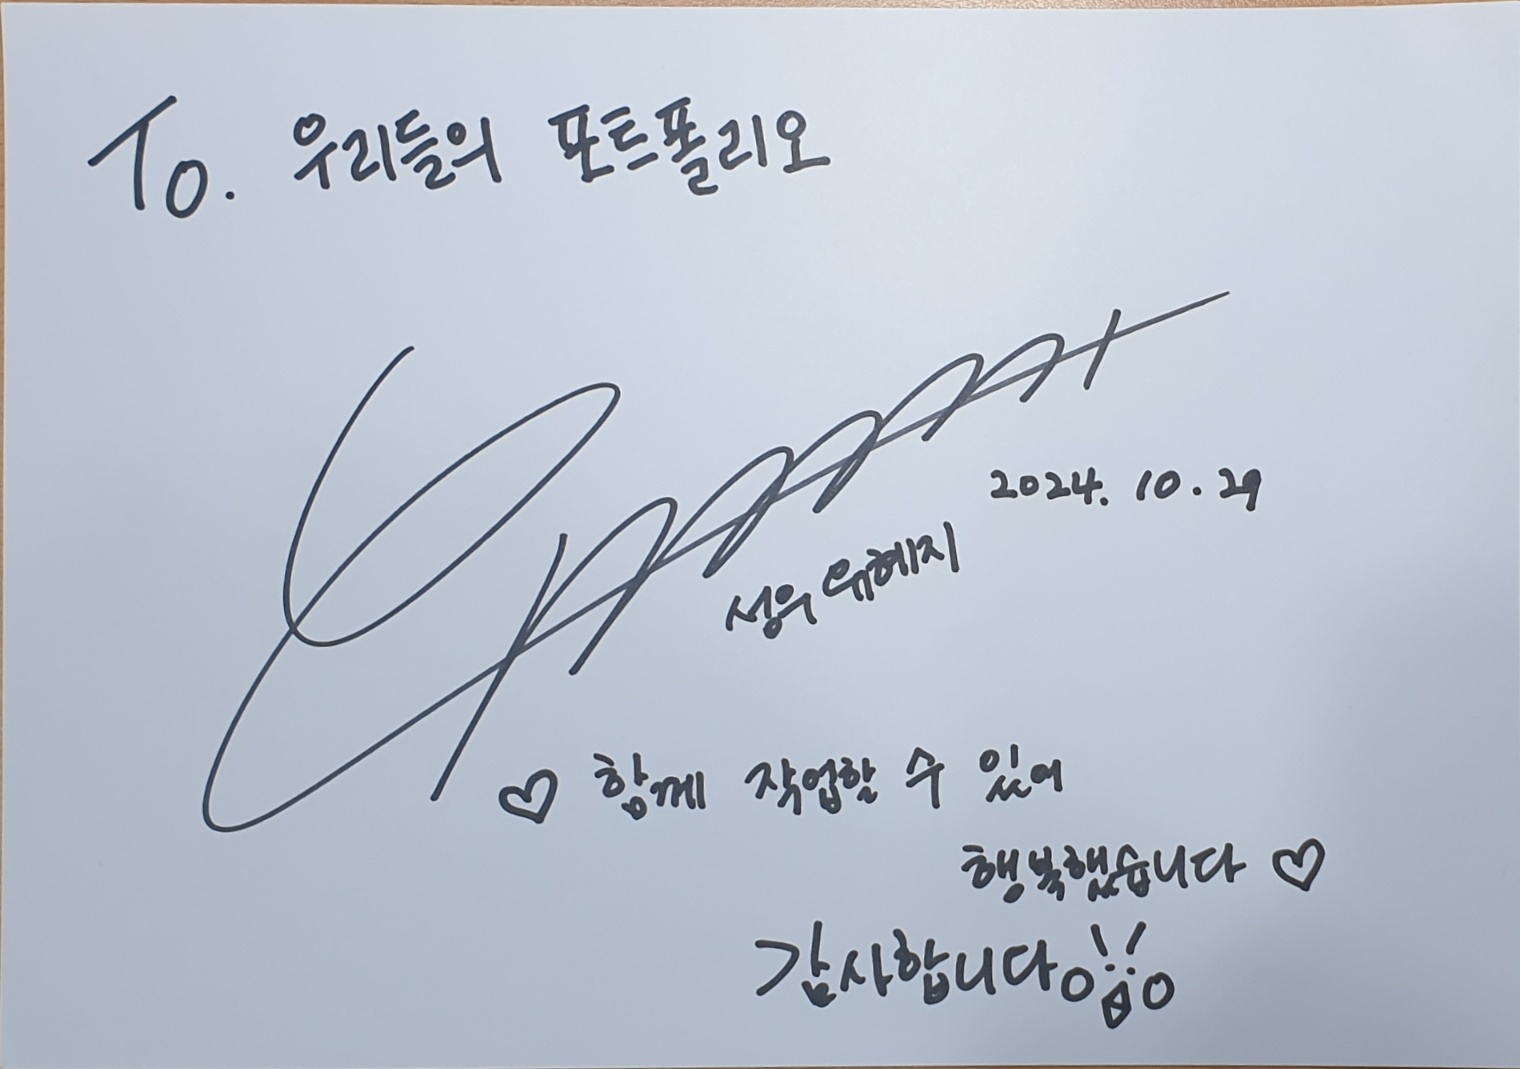 To. 우리들의 포트폴리오
2024. 10. 29
성우 유혜지
♡ 함께 작업할 수 있어
행복했습니다 ♡
감사합니다